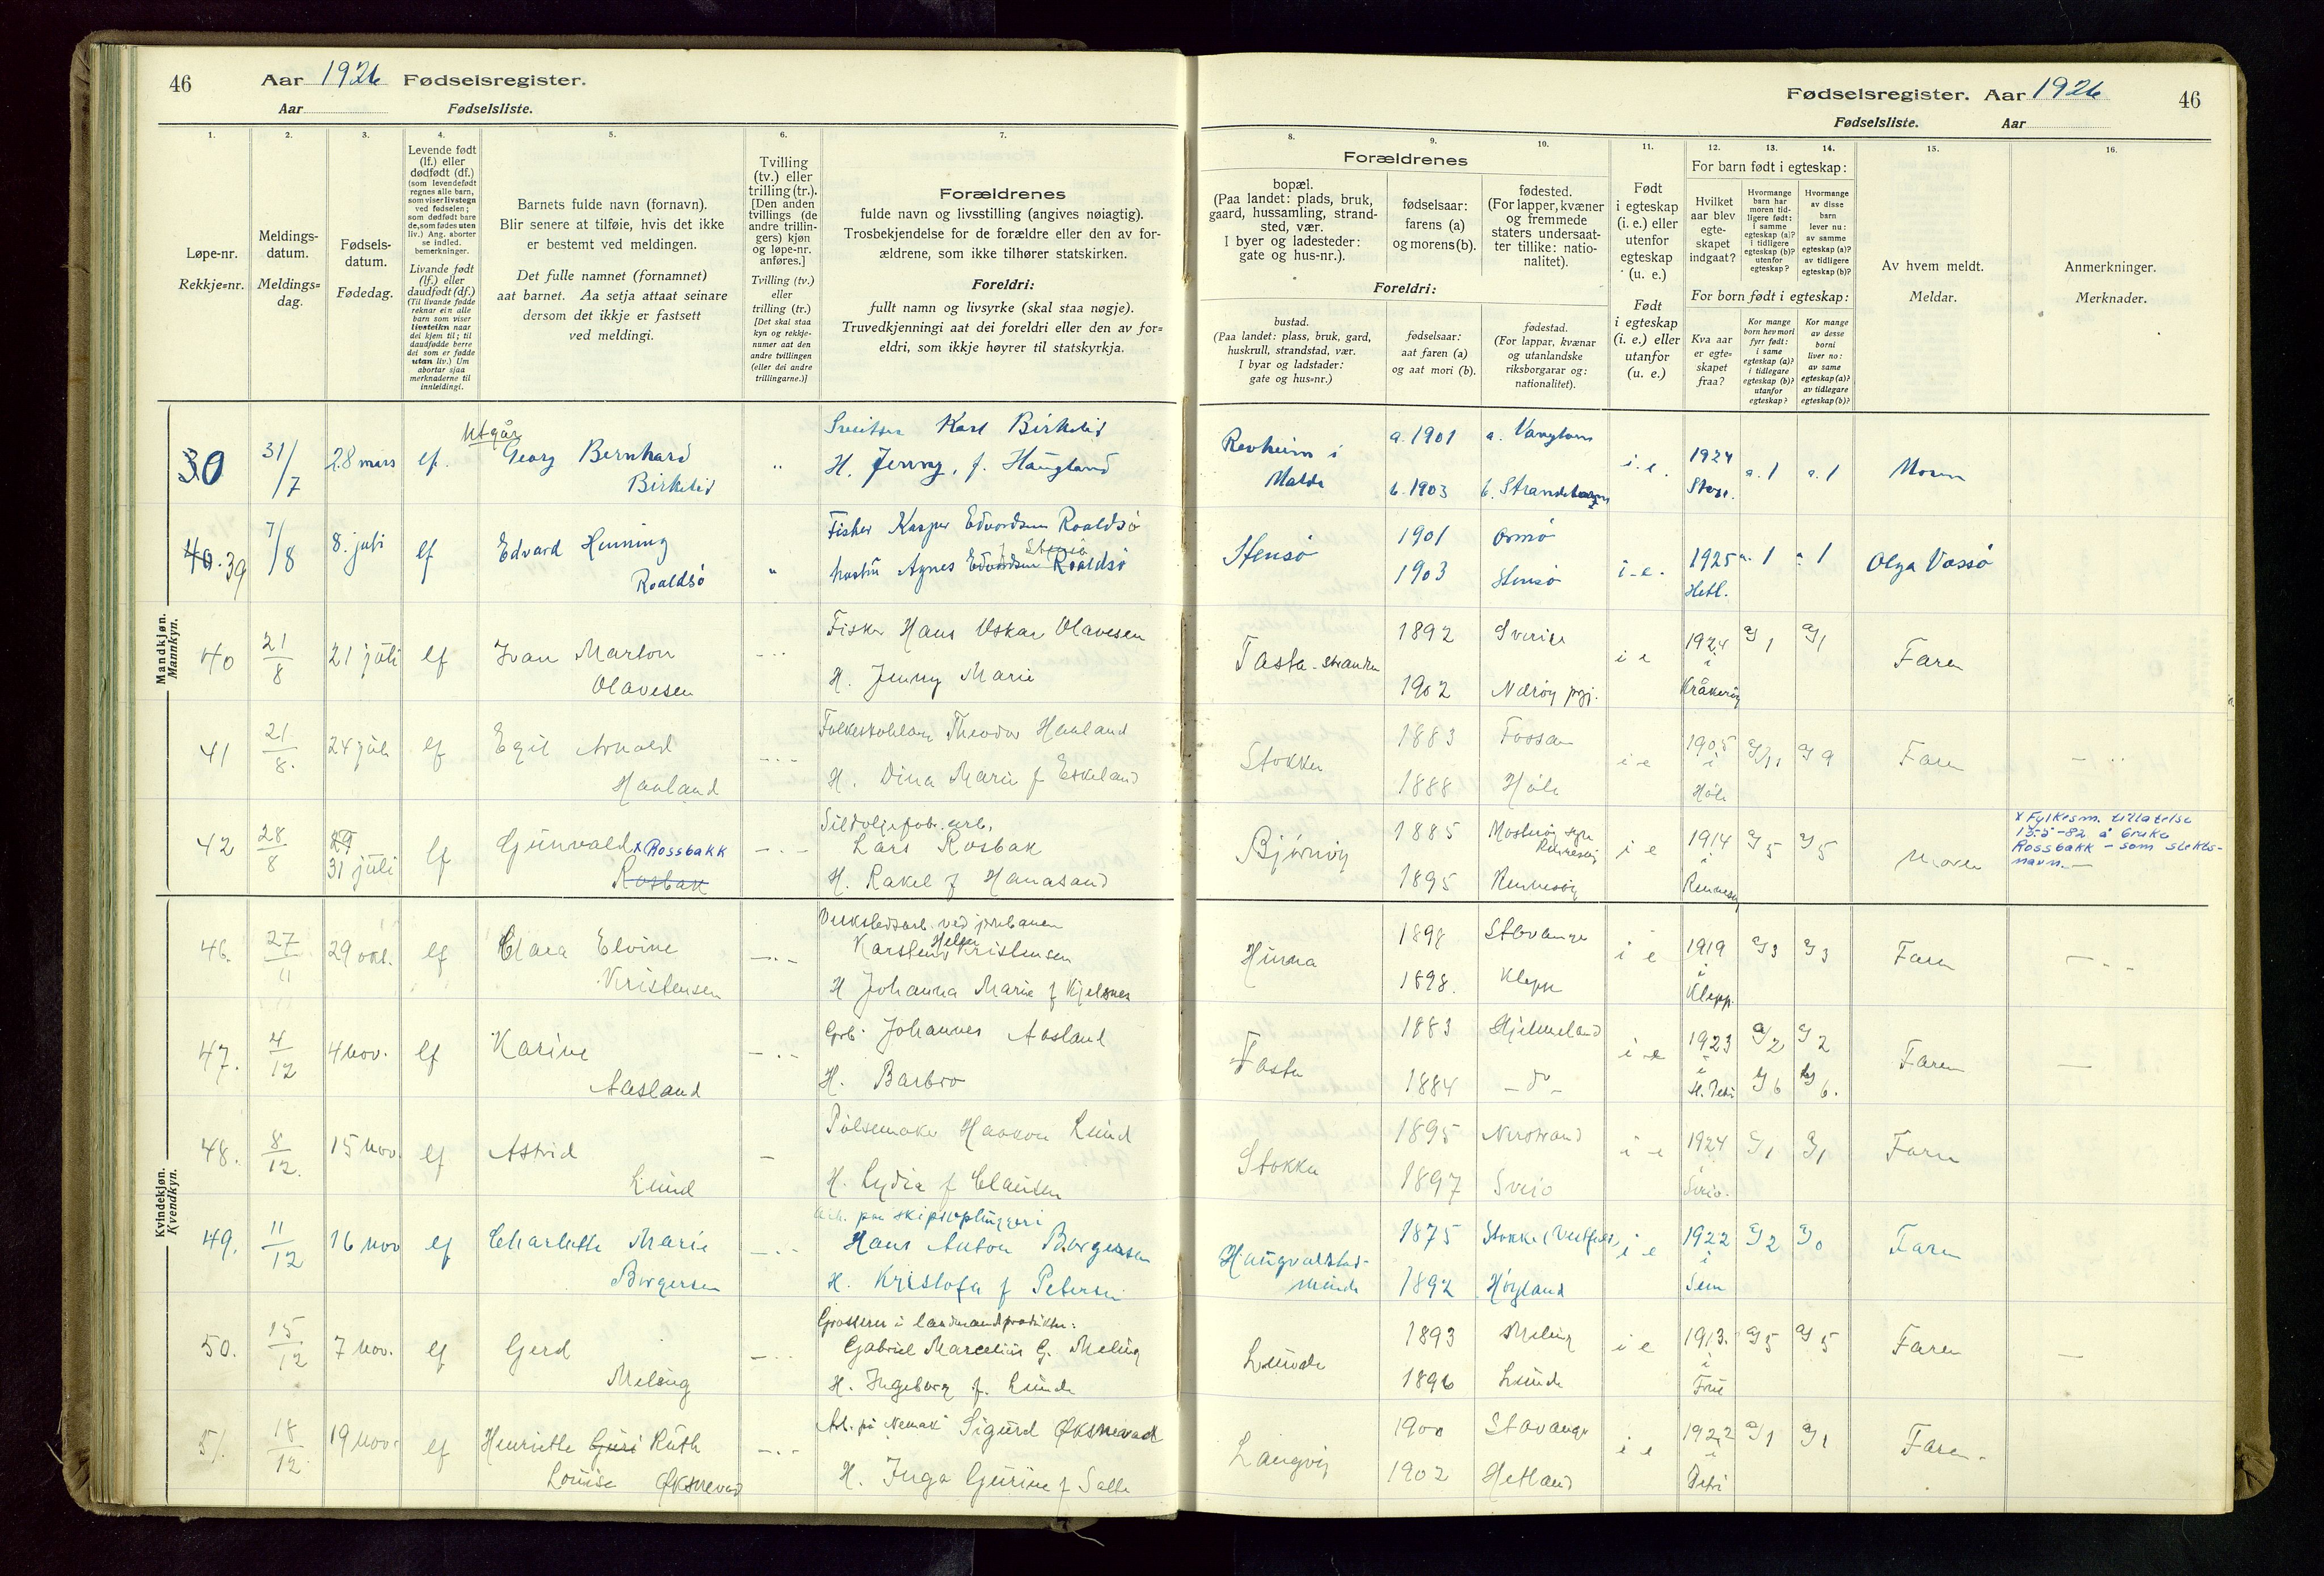 46
Aar 1926 Fødselsregister.
Aar Fødselsliste.
1. 2. 3. 4. 5. 6. 7.
Løpe-nr.
Rekkje=nr.
Meldings-
datum.
Meldings=
dag.
Fødsels-
datum.
Fødedag.
Levende født
(lf.) eller
dødfødt (df.)
(som levendefødt
regnes alle barn,
som viser livstegn
ved fødselen;
som dødfødt bare
de, som fødes uten
liv.) Ang. aborter
se indled.
bemerkninger.
Livande født
(lf.) eller
daudfødt (df.)
(Til livande fødde
reknar ein alle
barn som viser
livsteikn naar
dei kjem til; til
daudfødde berre
dei som er fødde
utan liv.) Um
abortar sjaa
merknaderne til
innleidingi.
Barnets fulde navn (fornavn).
Blir senere at tilføie, hvis det ikke
er bestemt ved meldingen.
Det fulle namnet (fornamnet)
aat barnet. Aa setja attaat seinare
dersom det ikkje er fastsett
ved meldingi.
Tvilling
(tv.) eller
trilling (tr.).
[Den anden
tvillings (de
andre trillin-
gers) kjøn
og løpe-nr.
anføres.]
Tvilling (tv.)
eller
trilling (tr.)
[Det skal staa
kyn og rekkje-
numer aat den
andre tvillingen
(eller dei andre
trillingarne.)]
Forældrenes
fulde navn og livsstilling (angives nøiagtig).
Trosbekjendelse for de forældre eller den av for-
ældrene, som ikke tilhører statskirken.
Foreldri:
fullt namn og livsyrke (skal staa nøgje).
Truvedkjenningi aat dei foreldri eller den av for=
eldri, som ikkje høyrer til statskyrkja.
Mandkjøn.
Mannkyn.
30 31/7 28 mars lf. Utgår Georg Bernhard Birkelid " Karl Birkelid
H. Jenny, f. Haugland
40. 39 7/8 8. juli lf Edvard Henning Roaldsø " Fisker Kasper Edvardsen Roaldsø
hustru Agnes Edvardsen Roaldsø f Stensø
40 21/8 21 juli lf Ivar Marton Olavesen -"- Fisker Hans Oskar Olavesen
H. Jenny Marie
41 21/8. 24 juli lf Egil Arnold Hauland -"- Theodor Hauland
H. Dina Marie f Eskeland
42 28/8 29 31 juli lf Gunvald x Rossbakk Rosbak -"- Sildoljefab. arb.
Lars Rosbak
H. Rakel f Hanasand
Kvindekjøn.
Kvendkyn.
46. 27/11 29 okt. lf Clara Elvine Kristensen -"- Verkstedsarb. ved jernbanen
Karsten Helge Kristensen
H Johanna Marie f Kjelsnes
47. 4/12 4 nov. lf Karine Aasland -"- Johannes Aasland
H. Barbro
48. 8/12. 15 nov. lf Astrid Lund - Pølsemaker Haakon Lund
H. Lydia f Clausen
49. 11/12 16 nov lf Charlotte Marie Borgersen -"- Arb. paa skipsophuggeri
Hans Anton Borgersen
H. Kristofa f Petersen
50. 15/12 7 nov. lf Gerd Meling -"- Grosserer i landmandsprodukter:
Gabriel Marcelius G. Meling
H. Ingeborg f. Lunde
51. 18/12 19 nov. lf Henriette Guri Ruth Louise Øksnevad -"- Arb. på Sigurd Øksnevad
H. Inga Gurine f Salte
Fødselsregister. Aar 1926
46
Fødselsliste. Aar
8. 9. 10. 11. 12. 13. 14. 15. 16.
Forældrenes
bopæl.
(Paa landet: plads, bruk,
gaard, hussamling, strand-
sted, vær.
I byer og ladesteder:
gate og hus-nr.).
fødselsaar:
farens (a)
og morens (b).
fødested.
(For lapper, kvæner
og fremmede
staters undersaat-
ter tillike: natio-
nalitet).
Foreldri:
bustad.
(Paa landet: plass, bruk, gard,
huskrull, strandstad, vær.
I byar og ladstader:
gate og hus=nr.)
fødselsaar:
aat faren (a)
og aat mori (b).
fødestad.
(For lappar, kvænar
og utanlandske
riksborgarar og:
nationalitet).
Født
i egteskap
(i. e.) eller
utenfor
egteskap
(u. e.)
Født
i egteskap
(i. e.) eller
utanfor
(u. e.)
For barn født i egteskap:
Hvilket
aar blev
egte-
skapet
indgaat?
Hvormange
barn har
moren tid-
ligere født:
i samme
egteskap (a)?
i tidligere
egteskap (b)?
utenfor
egteskap?
Hvormange
av disse
barn
lever nu:
av samme
egteskap (a)?
av tidligere
egteskap (b)?
For born født i egteskap:
Kva aar
er egte=
skapet
fraa?
Kor mange
born hev mori
fyrr født:
i same
egteskap (a)?
i tidlegare
egteskap (b)?
utanfor
egteskap?
Kor mange
av desse
borni
liver no:
av same
egteskap (a)?
av tidlegare
egteskap (b)?
Av hvem meldt.
Meldar.
Anmerkninger.
Merknader.
Revheim i Malde a. 1901 b. 1903 b. Strandebarm i.e. 1924 a. 1 a. 1 Moren
Stensø 1901 Ormø 1903 Stensø i-e. 1925 Hetl. a. 1 a 1 Olga Vassø
Tasta-stranden 1892 Sverige 1902 Nærøy pgj. i e 1924 i Kråkerøy a) 1 a) 1 Faren
Stokka 1883 Fossan 1888 Høle i e 1905 i Høle a) 11 a) 9 Faren -"
Bjørnøy 1885 Mosterøy sogn Rennesøy 1895 Rennesøy i e 1914 i Rennesøy a) 5 a) 5 Moren
x Fylkesm. tillatelse
13-5-82 å bruke
Rossbakk - som slekts-
navn. -
Hinna 1898 Stavanger 1898. Klepp i e 1919 i Klepp. a) 3 a) 3 Faren -"-
Tasta 1883 Hjelmeland 1884 - do - i e 1923 i St. Petri a) 2 b) 6 a) 2 b) 6. Faren -
Stokka 1895 Nerstrand 1897 Sveio i e 1924 i Sveio. a) 1 a) 1 Faren
Haugvaldstad-minde 1875 Stokke (Vestfold) 1892 Høyland i e 1922 i Sem a) 2 a) 0 Faren
Lunde 1893 Meling 1896 Lunde i e 1913. i Frue a) 5 a) 5 Faren -
Langvig 1900 Stavanger 1902 Hetland i e 1922 i Petri a) 1 a) 1 Faren.